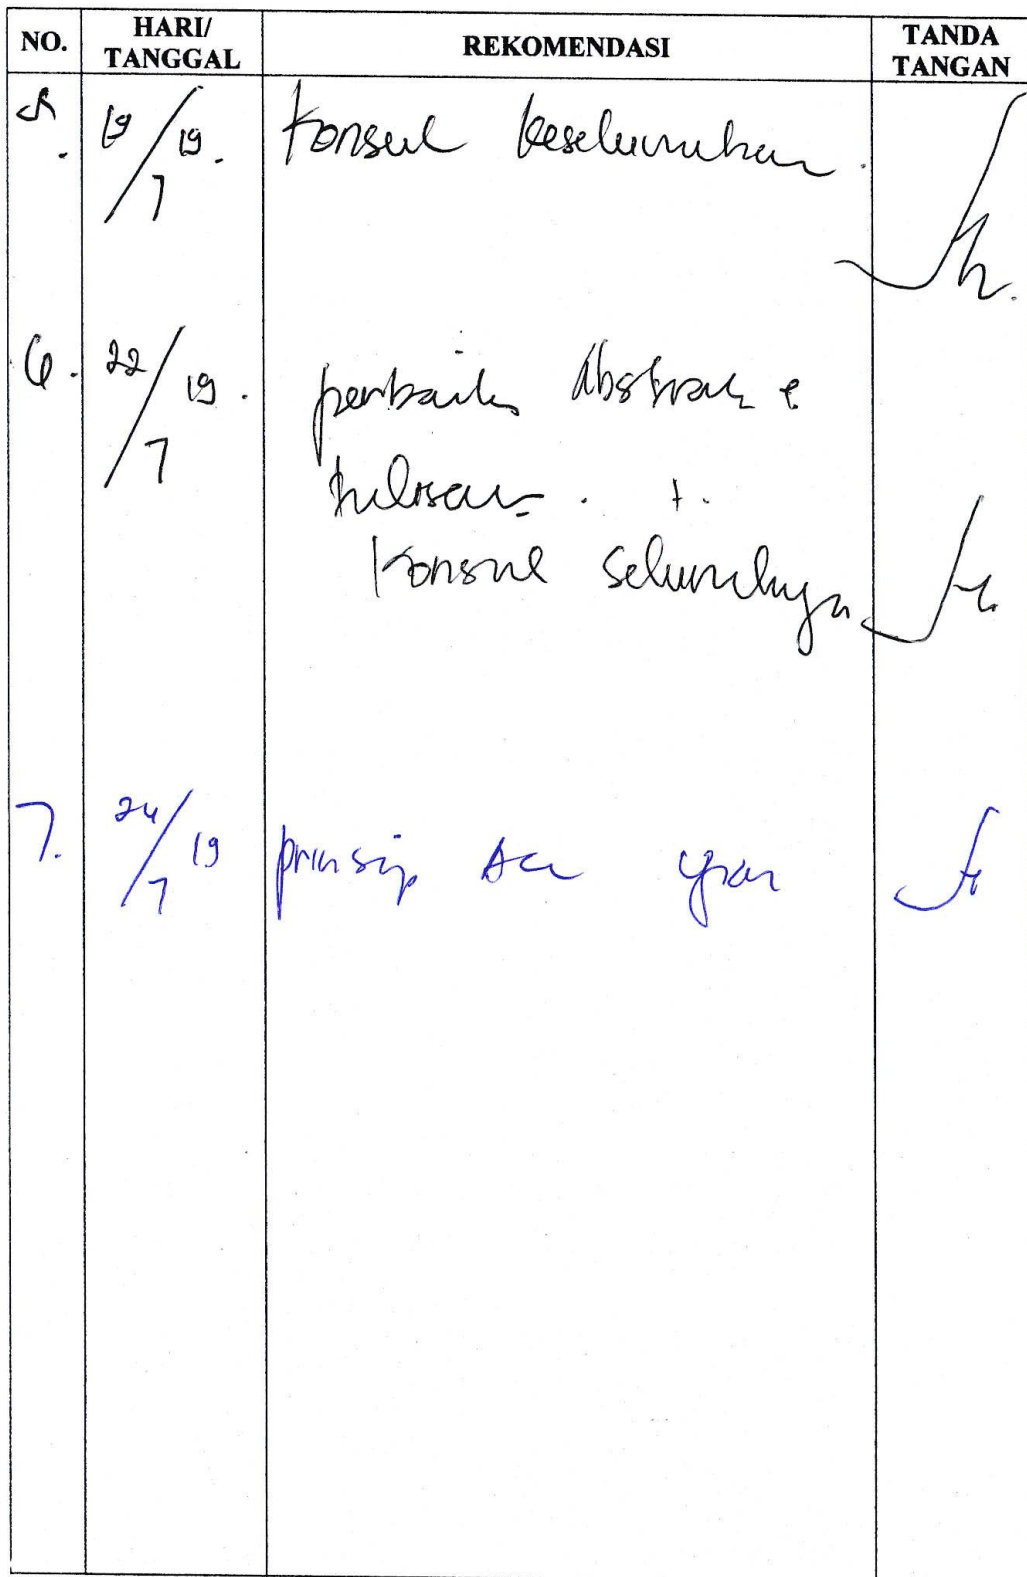 NO. HARI/ TANGGAL REKOMENDASI TANDA TANGAN
5. 19/7 19. Konsul keseluruhan.
6. 22/7 19. perbaiki Abstrak &
tulisan. +.
Konsul seluruhnya
7. 24/7 19 prinsip Acc ujian